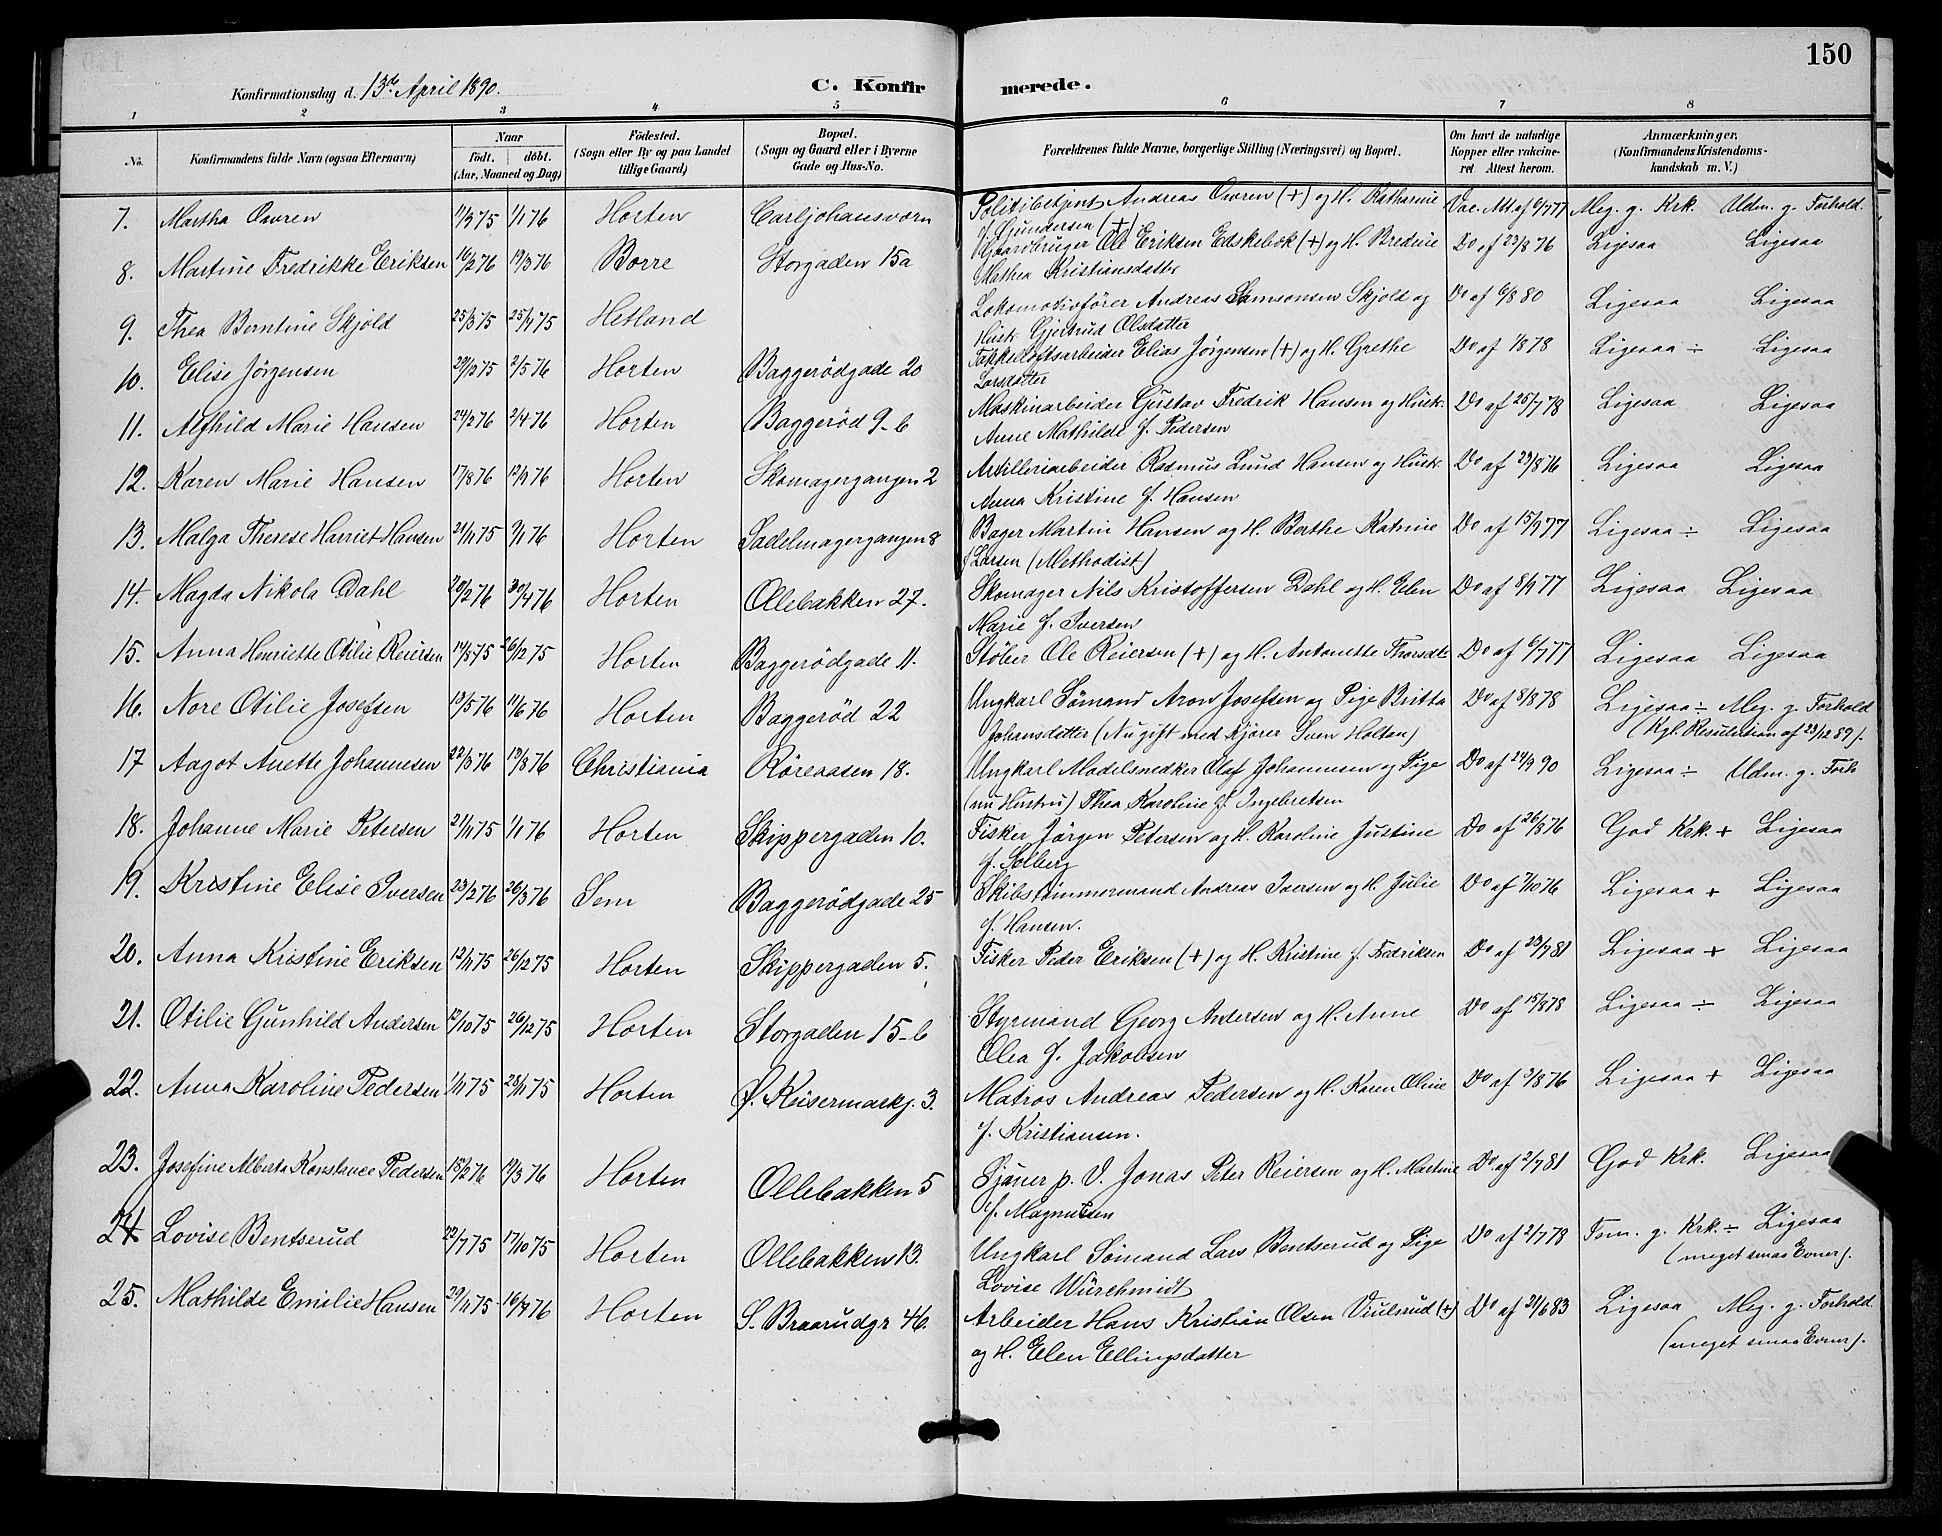 150
Konfirmationsdag d. 13de April 1890. C. Konfirmerede.
1 2 3 4 5 6 7 8
No. Konfirmandens fulde Navn (ogsaa Efternavn) Naar födt. döbt. (Aar, Maaned og Dag) Födested. (Sogn eller By og paa Landet tillige Gaard) Bopæl. (Sogn og Gaard eller i Byerne Gade og Hus-No. Forældrenes fulde Navne, borgerlige Stilling (Næringsvei) og Bopæl. Om havt de naturlige Kopper eller vakcineret Attest herom. Anmærkninger. (Konfirmandens Kristendomskundskab m. V.)
7. Martha Owren 1/9 75 1/1 76 Horten Carljohansværn Politibetjent Andreas Owren (+) og H. Katharine Vac. Att af 6/7 77 Meg. g. Krk. Udm. g. Forhold.
f. Gundersen (+)
8. Martine Fredrikke Eriksen 16/2 76 19/3 76 Borre Storgaden 15a Gaardbruger Ole Eriksen Edskebek (+) og H. Bredine Do af 23/8 76 Ligesaa Ligesaa
Mathea Kristiansdatter
9. Thea Berntine Skjold 25/3 75 25/4 75 Hetland Lokomotivförer Andreas Samsonsen Skjold og Do af 6/8 80 Ligesaa Ligesaa
Hust. Gjertrud Olsdatter
10. Elise Jörgensen 29/12 75 2/5 76 Horten Baggerödgade 20 Takkeloftsarbeider Elias Jörgensen (+) og H. Grethe Do af 1878 Ligesaa ÷ Ligesaa
Larsdatter
11. Alfhild Marie Hansen 24/2 76 2/4 76 Horten Baggeröd 9-b Maskinarbeider Gustav Fredrik Hansen og Hustr. Do af 25/7 78 Ligesaa Ligesaa
Anne Mathilde f. Pedersen
12. Karen Marie Hansen 17/8 76 Horten Skomagergangen 2 Artilleriarbeider Rasmus Lund Hansen og Hustr. Do af 23/8 76 Ligesaa Ligesaa
Anna Kristine f. Hansen
13. Malga Therese Harriet Hansen 21/11 75 Horten Sadelmagergangen 8 Bager Martin Hansen og H. Berthe Katrine Do af 15/9 77 Ligesaa ÷ Ligesaa
f Larsen (Methodist)
14. Magda Nikola Dahl 20/2 76 30/4 76 Horten Ollebakken 27. Skomager Nils Kristoffersen Dahl og H. Elen Do af 8/9 77 Ligesaa Ligesaa
Marie f. Iversen
15. Anna Henriette Otilie Reiersen 14/8 75 26/12 75 Horten Baggerödgade 11. Støber Ole Reiersen (+) og H. Antonette Thorsdt Do af 6/7 77 Ligesaa Ligesaa
16. Nore Otilie Josefsen 13/5 76 11/6 76 Horten Baggeröd 22 Ungkarl Sömand Aron Josefsen og Pige Britta Do af 8/8 78 Ligesaa ÷ Meg. g. Forhold
Johansdatter (Nu gift med Kjörer Sven Holtan) (Kgl. Resolution af 23/12 89).
17 Aagot Anette Johannesen 22/3 76 13/8 76 Christiania Rörevasen 18. Ungkarl Modelsnedker Olaf Johannesen og Pige Do af 24/9 90 Ligesaa ÷ Udm. g. Forh
(nu Hustru) Thea Karoline f. Ingebretsen
18. Johanne Marie Petersen 21/11 75 1/1 76 Horten Skippergaden 10. Fisker Jörgen Petersen og H. Karoline Justine Do af 26/8 76 God Krk. + Ligesaa
f. Solberg
19. Kristine Elise Iversen 23/2 76 26/3 76 Sem Baggerödgade 25 Skibstömmermand Andreas Iversen og H. Julie Do af 7/10 76 Ligesaa + Ligesaa
f. Hansen.
20. Anna Kristine Eriksen 12/11 75 26/12 75 Horten Skippergaden 5. Fisker Peder Eriksen (+) og H. Kristine f. Fredriksen Do af 23/7 81 Ligesaa + Ligesaa
21. Otilie Gunhild Andersen 12/10 75 26/12 75 Horten Storgaden 15-b Styrmand Georg Andersen og H. Anne Do af 15/8 78 Ligesaa ÷ Ligesaa
Olea f. Jakobsen
22. Anna Karoline Pedersen 1/11 75 28/11 75 Horten Ø. Keisermarkj. 3. Matros Andreas Pedersen og H. Karen Oline Do af 2/8 76 Ligesaa + Ligesaa
f. Kristiansen.
23. Josefine Alberta Konstance Pedersen 18/2 76 19/3 76 Horten Ollebakken 5 Sjauer p. V. Jonas Peter Reiersen og H. Martine Do af 2/7 81 God Krk. Ligesaa
f. Magnussen
24 Lovise Bentserud 22/7 75 17/10 75 Horten Ollebakken 13. Ungkarl Sömand Lars Bentserud og Pige Do af 2/7 78 Tem. g. Krk. ÷ Ligesaa
Lovise Würschmidt (meget smaa Evner).
25. Mathilde Emilie Hansen 29/11 75 16/4 76 Horten S. Braarudgr 46. Arbeider Hans Kristian Olsen Viulsrud (+) Do af 21/6 83 Ligesaa Meg. g. Forhold
og H. Elen Ellingsdatter (meget smaa Evner).